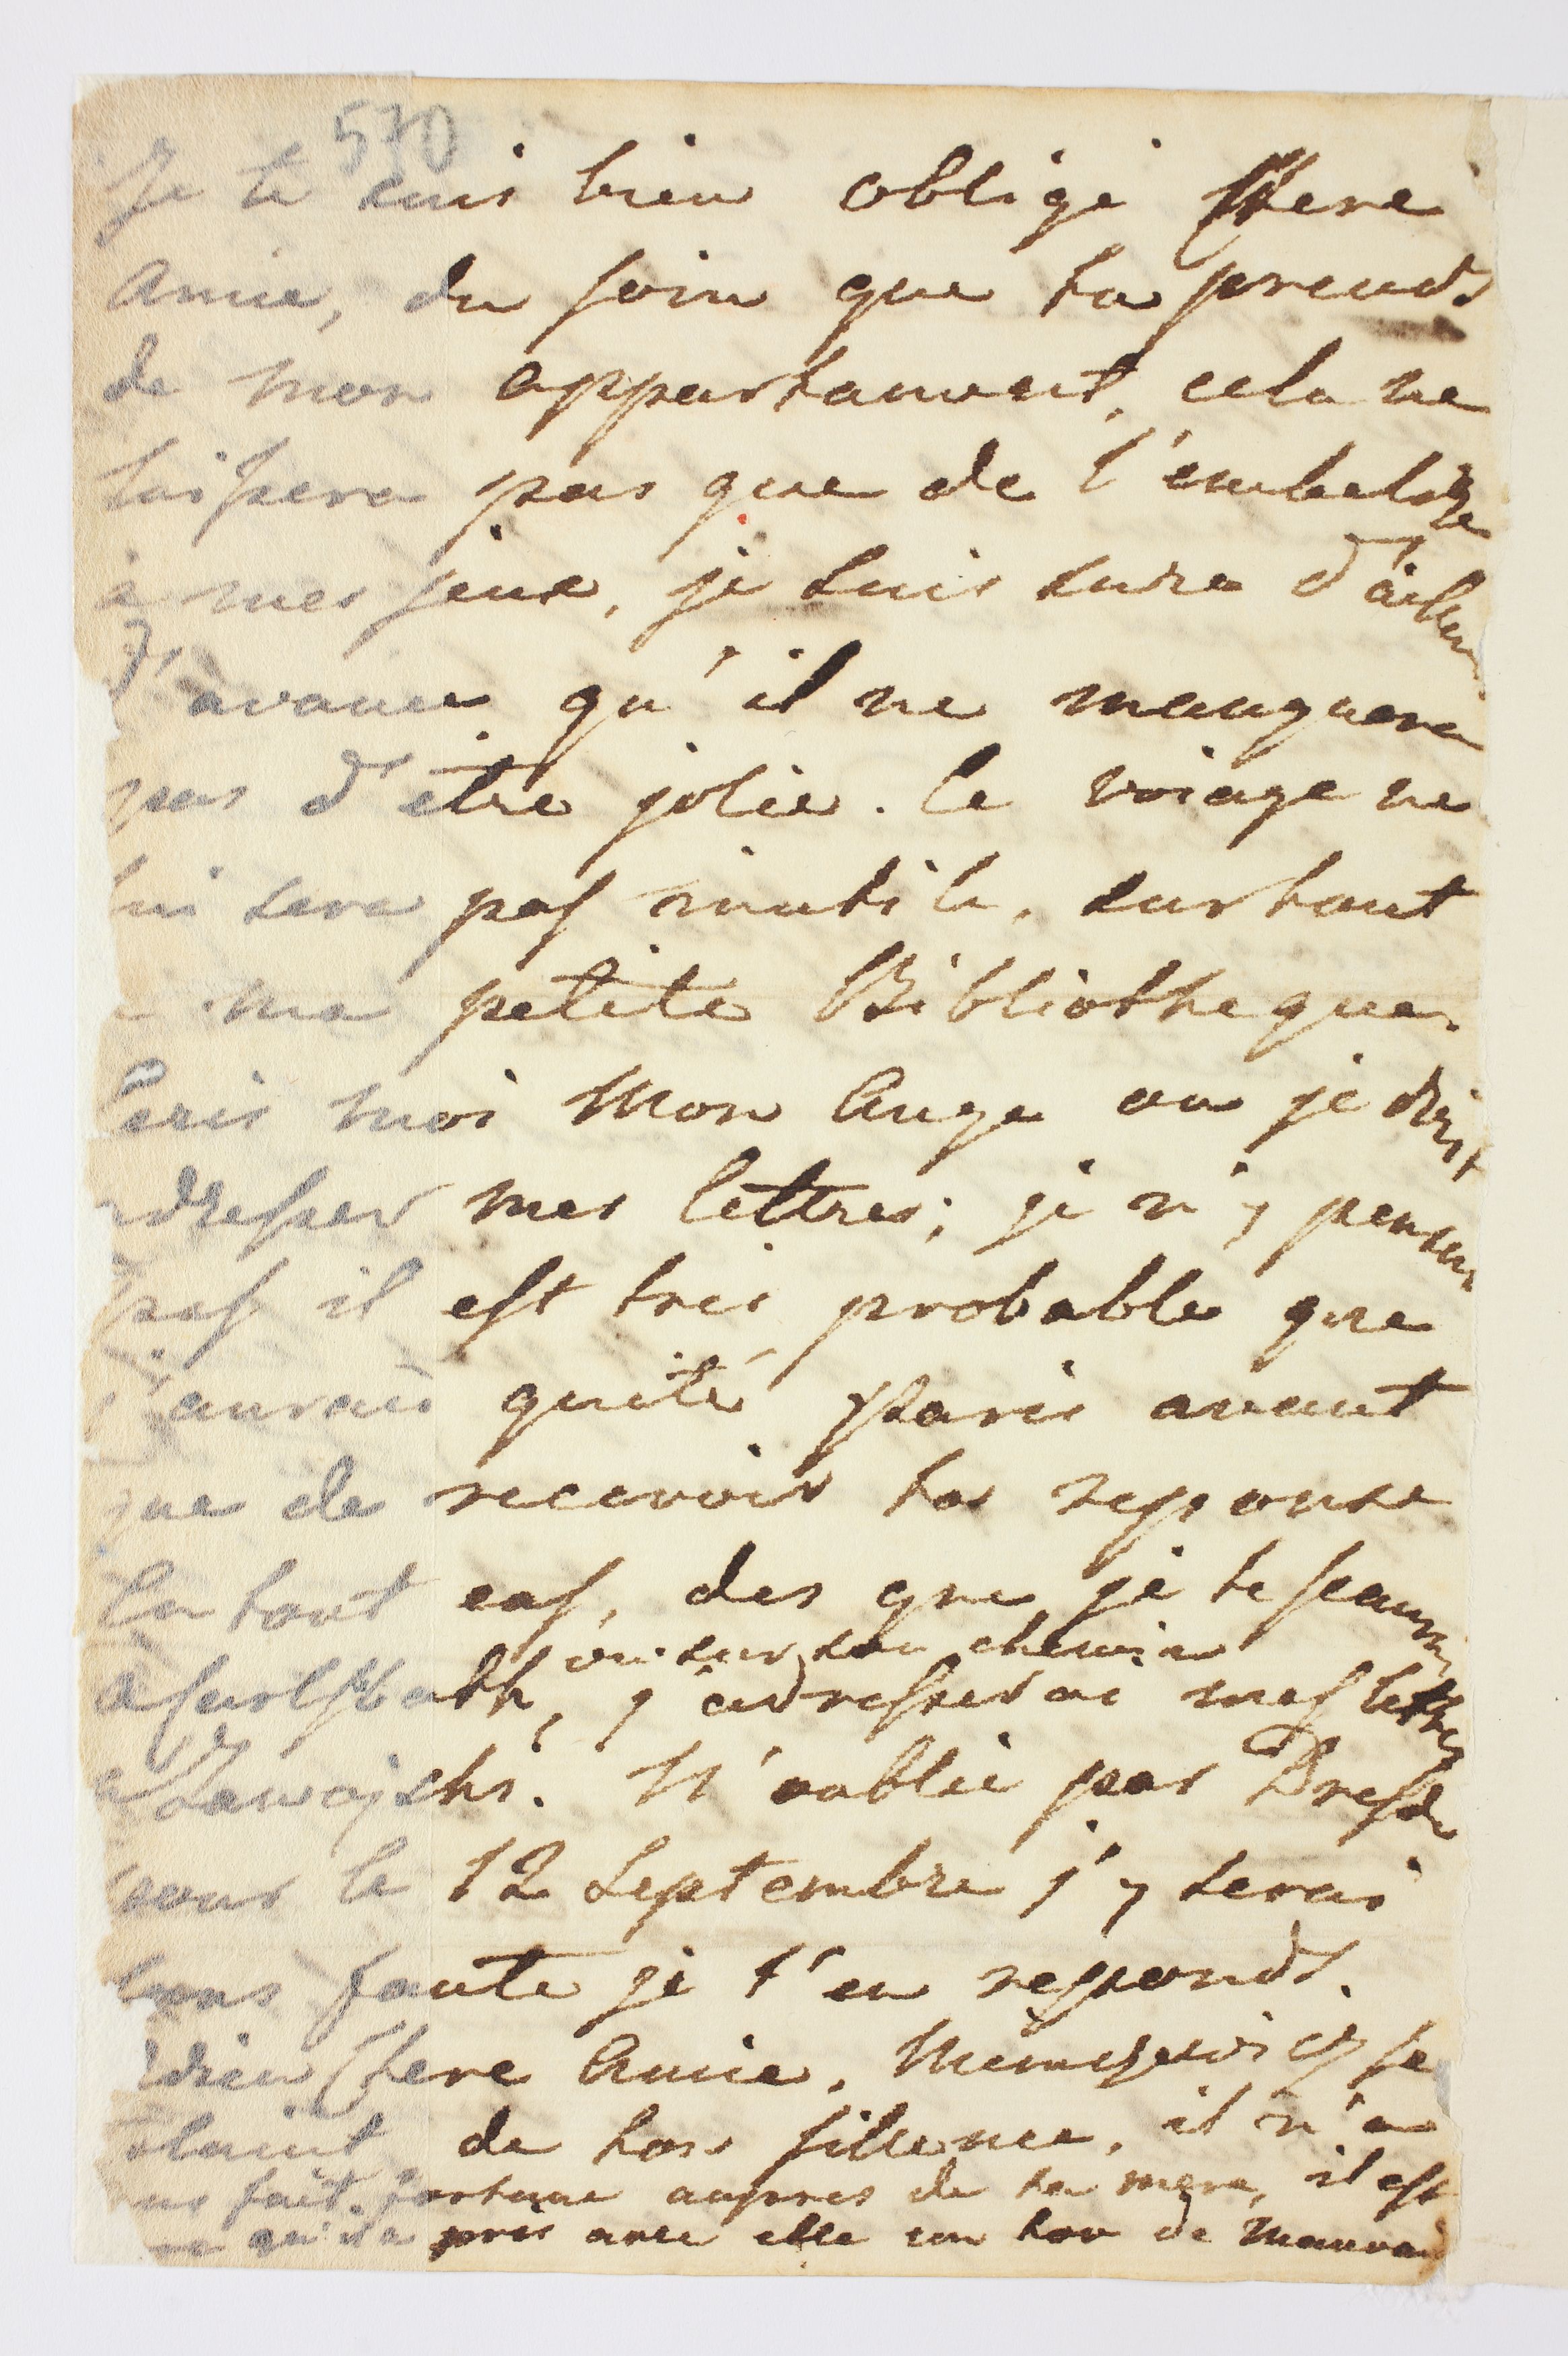 570
Je te suis bien obligé Chere
Amie, du soin que tu prends
de mon appartament, cela ne
laissera pas que de l'embelire
à mes jeux, je suis sure d'ailleurs
d'avance qu'il ne manquera
pas d'être jolie. Ce voiage ne
lui sera pas inutile, surtout
a ma petite Bibliotheque.
Ecris moi Mon Ange ou je dois
adresser mes lettres; je n'y pensai
pas il est tres probable que
j'aurais quité Paris avant
que de recevoir ta reponse
En tout cas, des que je te scaurai
ou sur ton chemin
à Carlsbath, j'adresserai mes lettres
a Zawojski. N'oublie pas Dresde
pour le 12 Septembre j'y serai
sans faute je t'en reponds.
Adieu Chere Amie. se
plaint de ton sillence, il n'a
pas fait fortune aupres de ta mere, il est
qu'il a pris avec elle un ton de mauvais